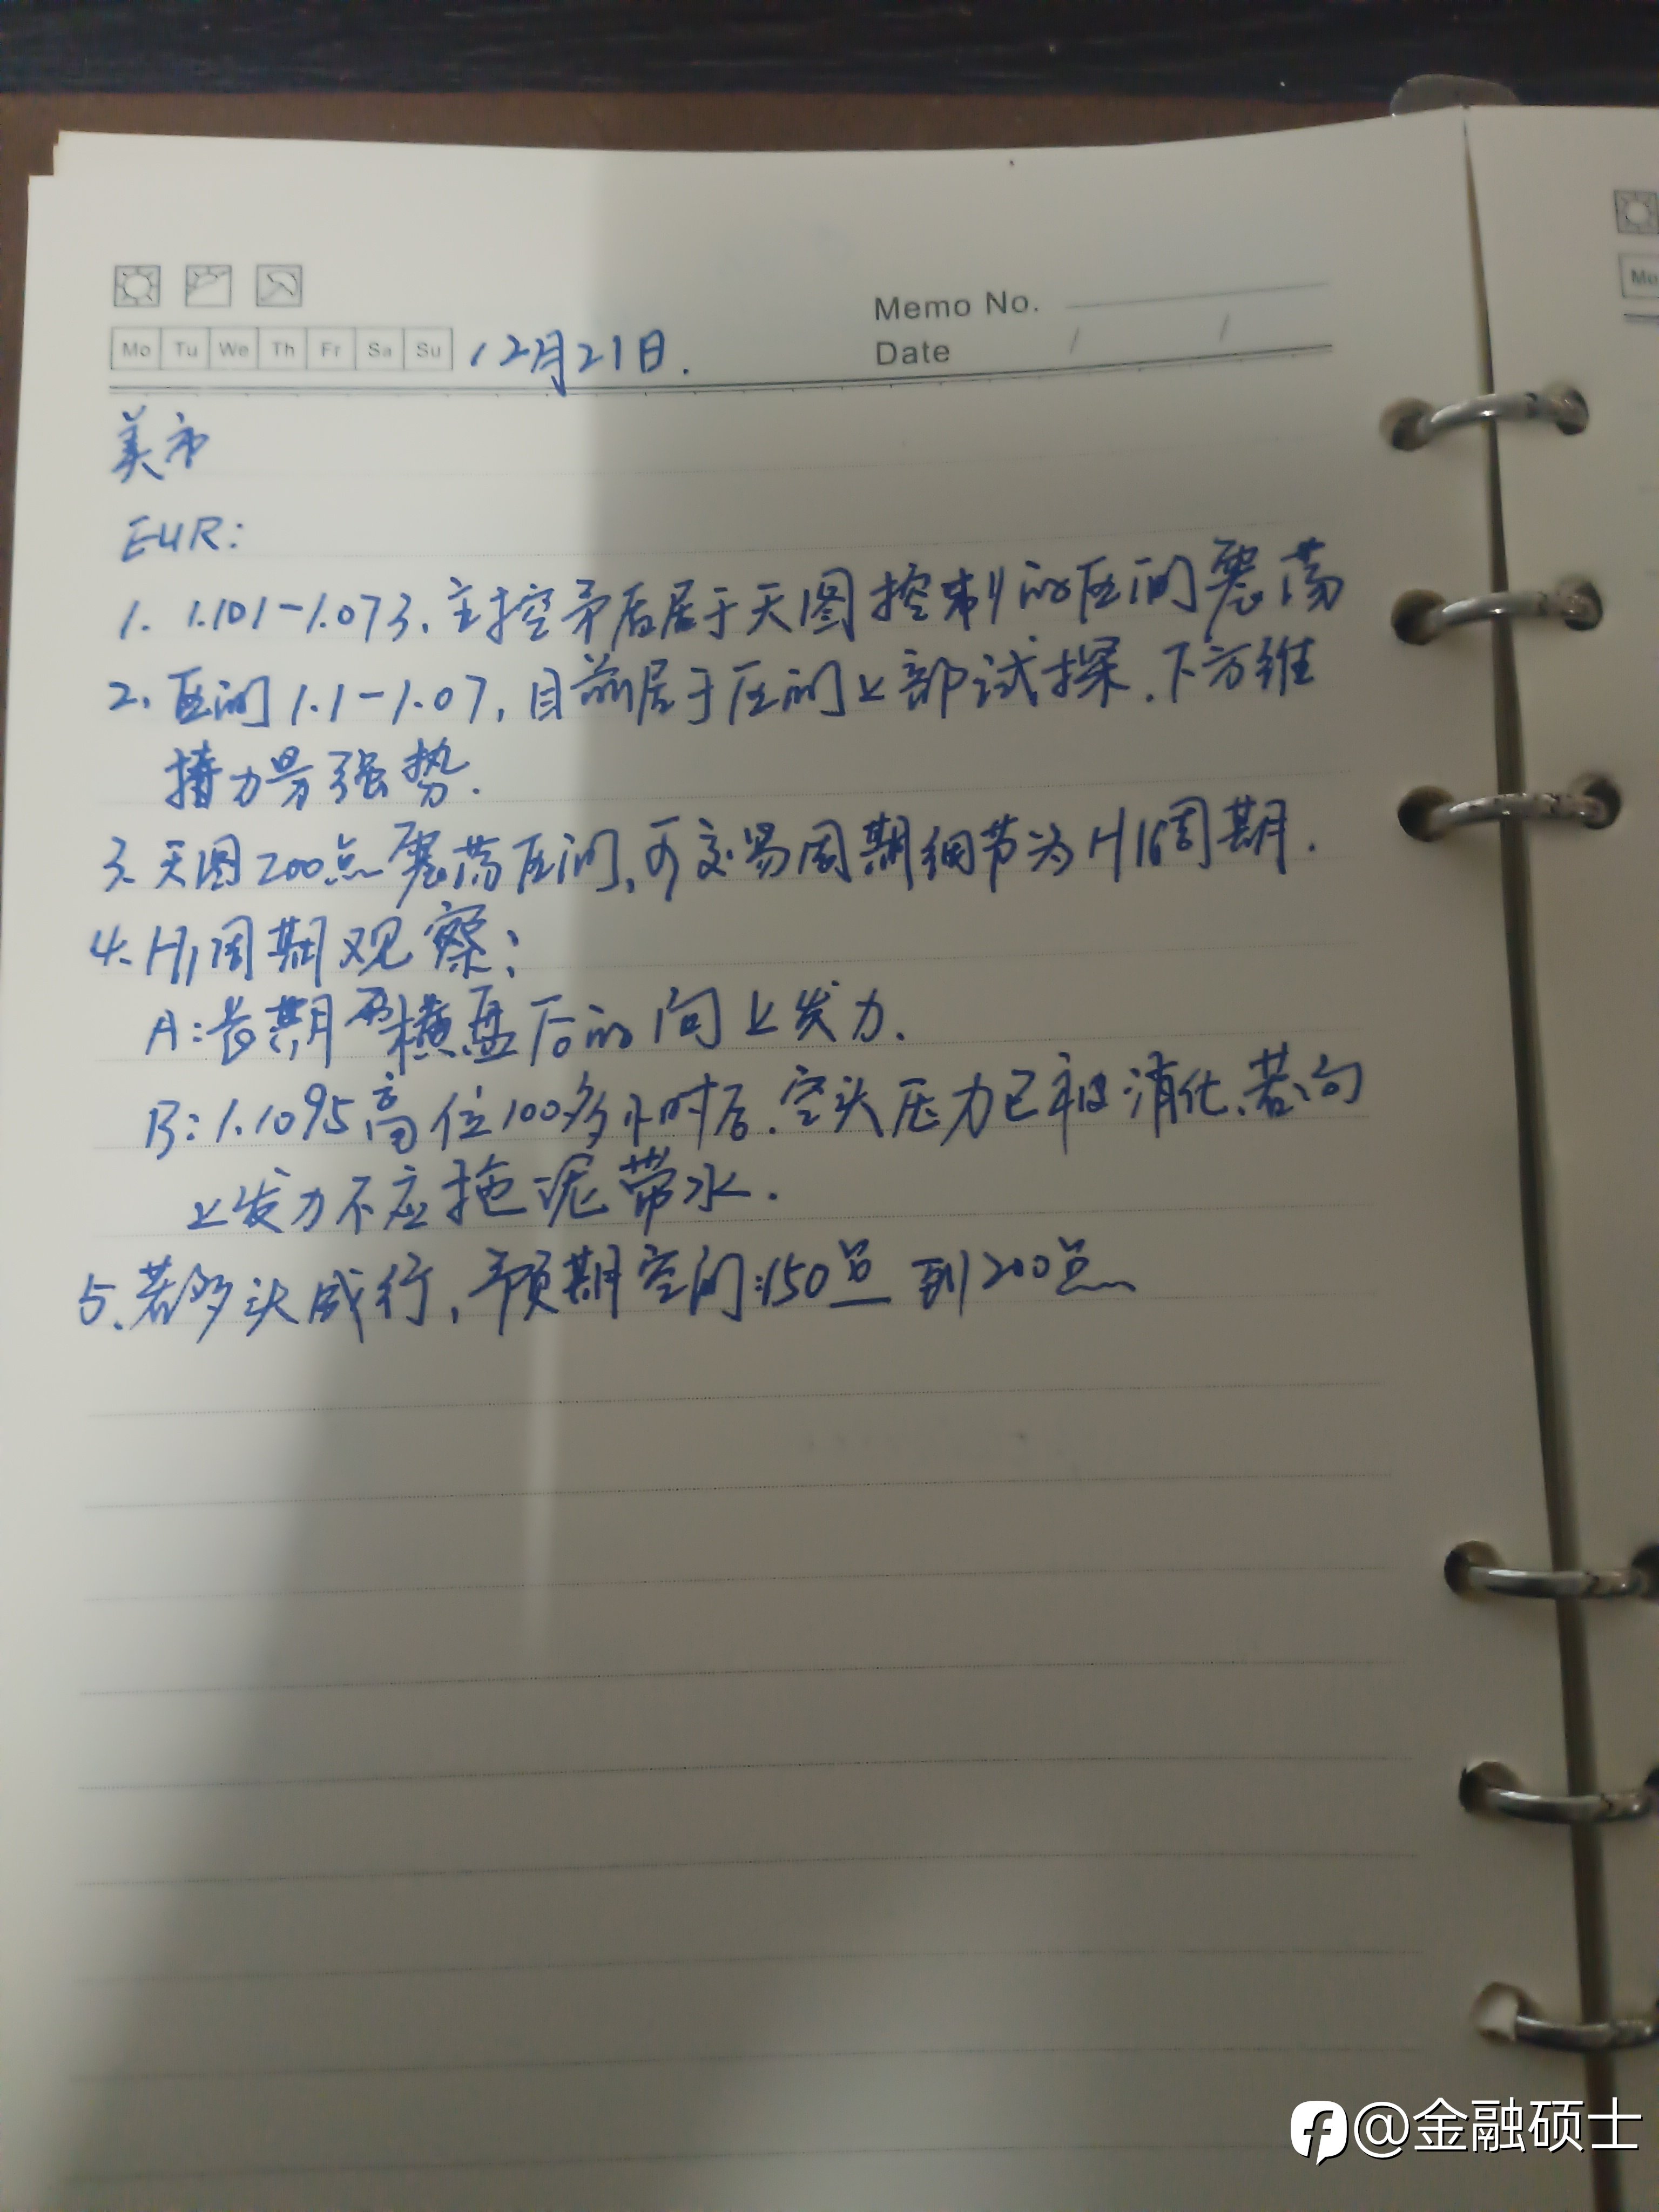 Memo No.
Mo Tu We Th Fr Sa Su 12月21日. Date / /
Mo
美市
EUR:
1. 1.101-1.073、主控矛盾居于天图控制的区间震荡
2. 区间1.1-1.07,目前居于区间上部试探.下方维
持力量强势.
3. 天图200点震荡区间,可交易周期细节为H1周期.
4. H1周期观察:
A:长期横盘后的向上发力.
B:1.1095高位100多小时后.空头压力已被消化、若向
上发力不应拖泥带水.
5. 若多头成行,预期空间:150点到200点
@金融硕士